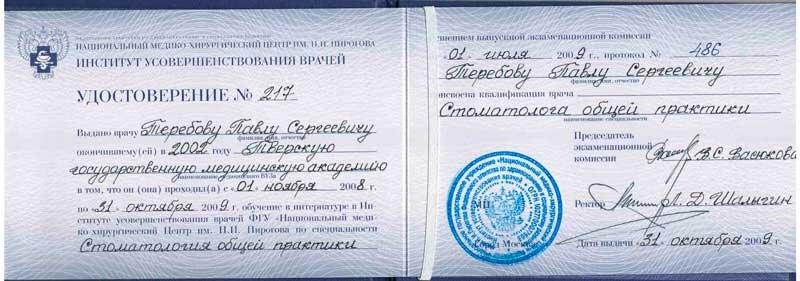 НАЦИОНАЛЬНЫЙ МЕДИКО-ХИРУРГИЧЕСКИЙ ЦЕНТР ИМ. Н.И. ПИРОГОВА
ИНСТИТУТ УСОВЕРШЕНСТВОВАНИЯ ВРАЧЕЙ
УДОСТОВЕРЕНИЕ № 217
Выдано врачу Теребову Павлу Сергеевичу
фамилия, имя, отчество
окончившему(ей) в 2002 году Тверскую
государственную медицинскую академию
наименование ВУЗа
в том, что он (она) проходил(а) с «01» ноября 2008 г.
по «31» октября 2009 г. обучение в интернатуре в Ин-
ституте усовершенствования врачей ФГУ «Национальный меди-
ко-хирургический Центр им. Н.И. Пирогова по специальности
Стоматология общей практики
шением выпускной экзаменационной комиссии
«01» июля 2009 г., протокол № 486
Теребову Павлу Сергеевичу
фамилия, имя, отчество
своена квалификация врача
Стоматолога общей практики
наименование специальности
Председатель
экзаменационной
комиссии В.С. Васюкова
МП
Ректор Л. Д. Шалыгин
Город Москва
Дата выдачи «31» октября 2009 г.